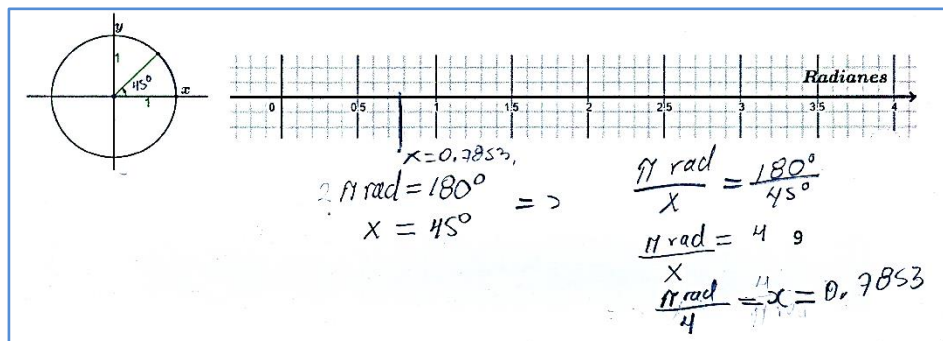 y
1
45°
1
x
Radianes
0 0'5 1 1'5 2 2'5 3 3'5 4
x=0.7853,
π rad = 180°
x = 45°
=>
π rad / x = 180° / 45°
π rad / x = 4 9
π rad / 4 = x = 0.7853